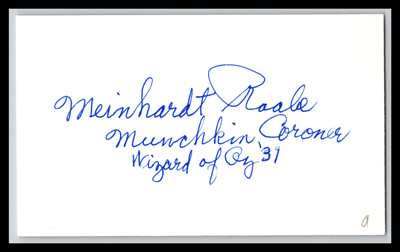 Meinhardt Raabe
Munchkin Coroner
Wizard of Oz '39
a